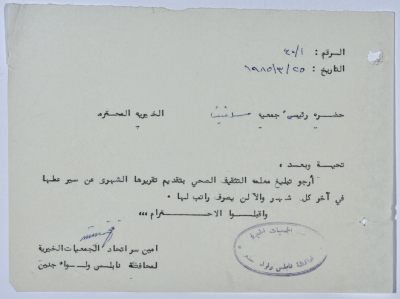 الرقم : ٤٠/١
التاريخ : ١٩٨٥/٣/٢٥
حضرة رئيس جمعية سلفيت الخيرية المحترم
تحية وبعد ،
أرجو تبليغ معلمة التثقيف الصحي بتقديم تقريرها الشهري عن سير عملها
في آخر كل شهر والا لن يصرف راتب لها .
واقبلوا الاحترام ،،،
امين سر اتحاد الجمعيات الخيرية
لمحافظة نابلس ولواء جنين
الجمعيات الخيرية